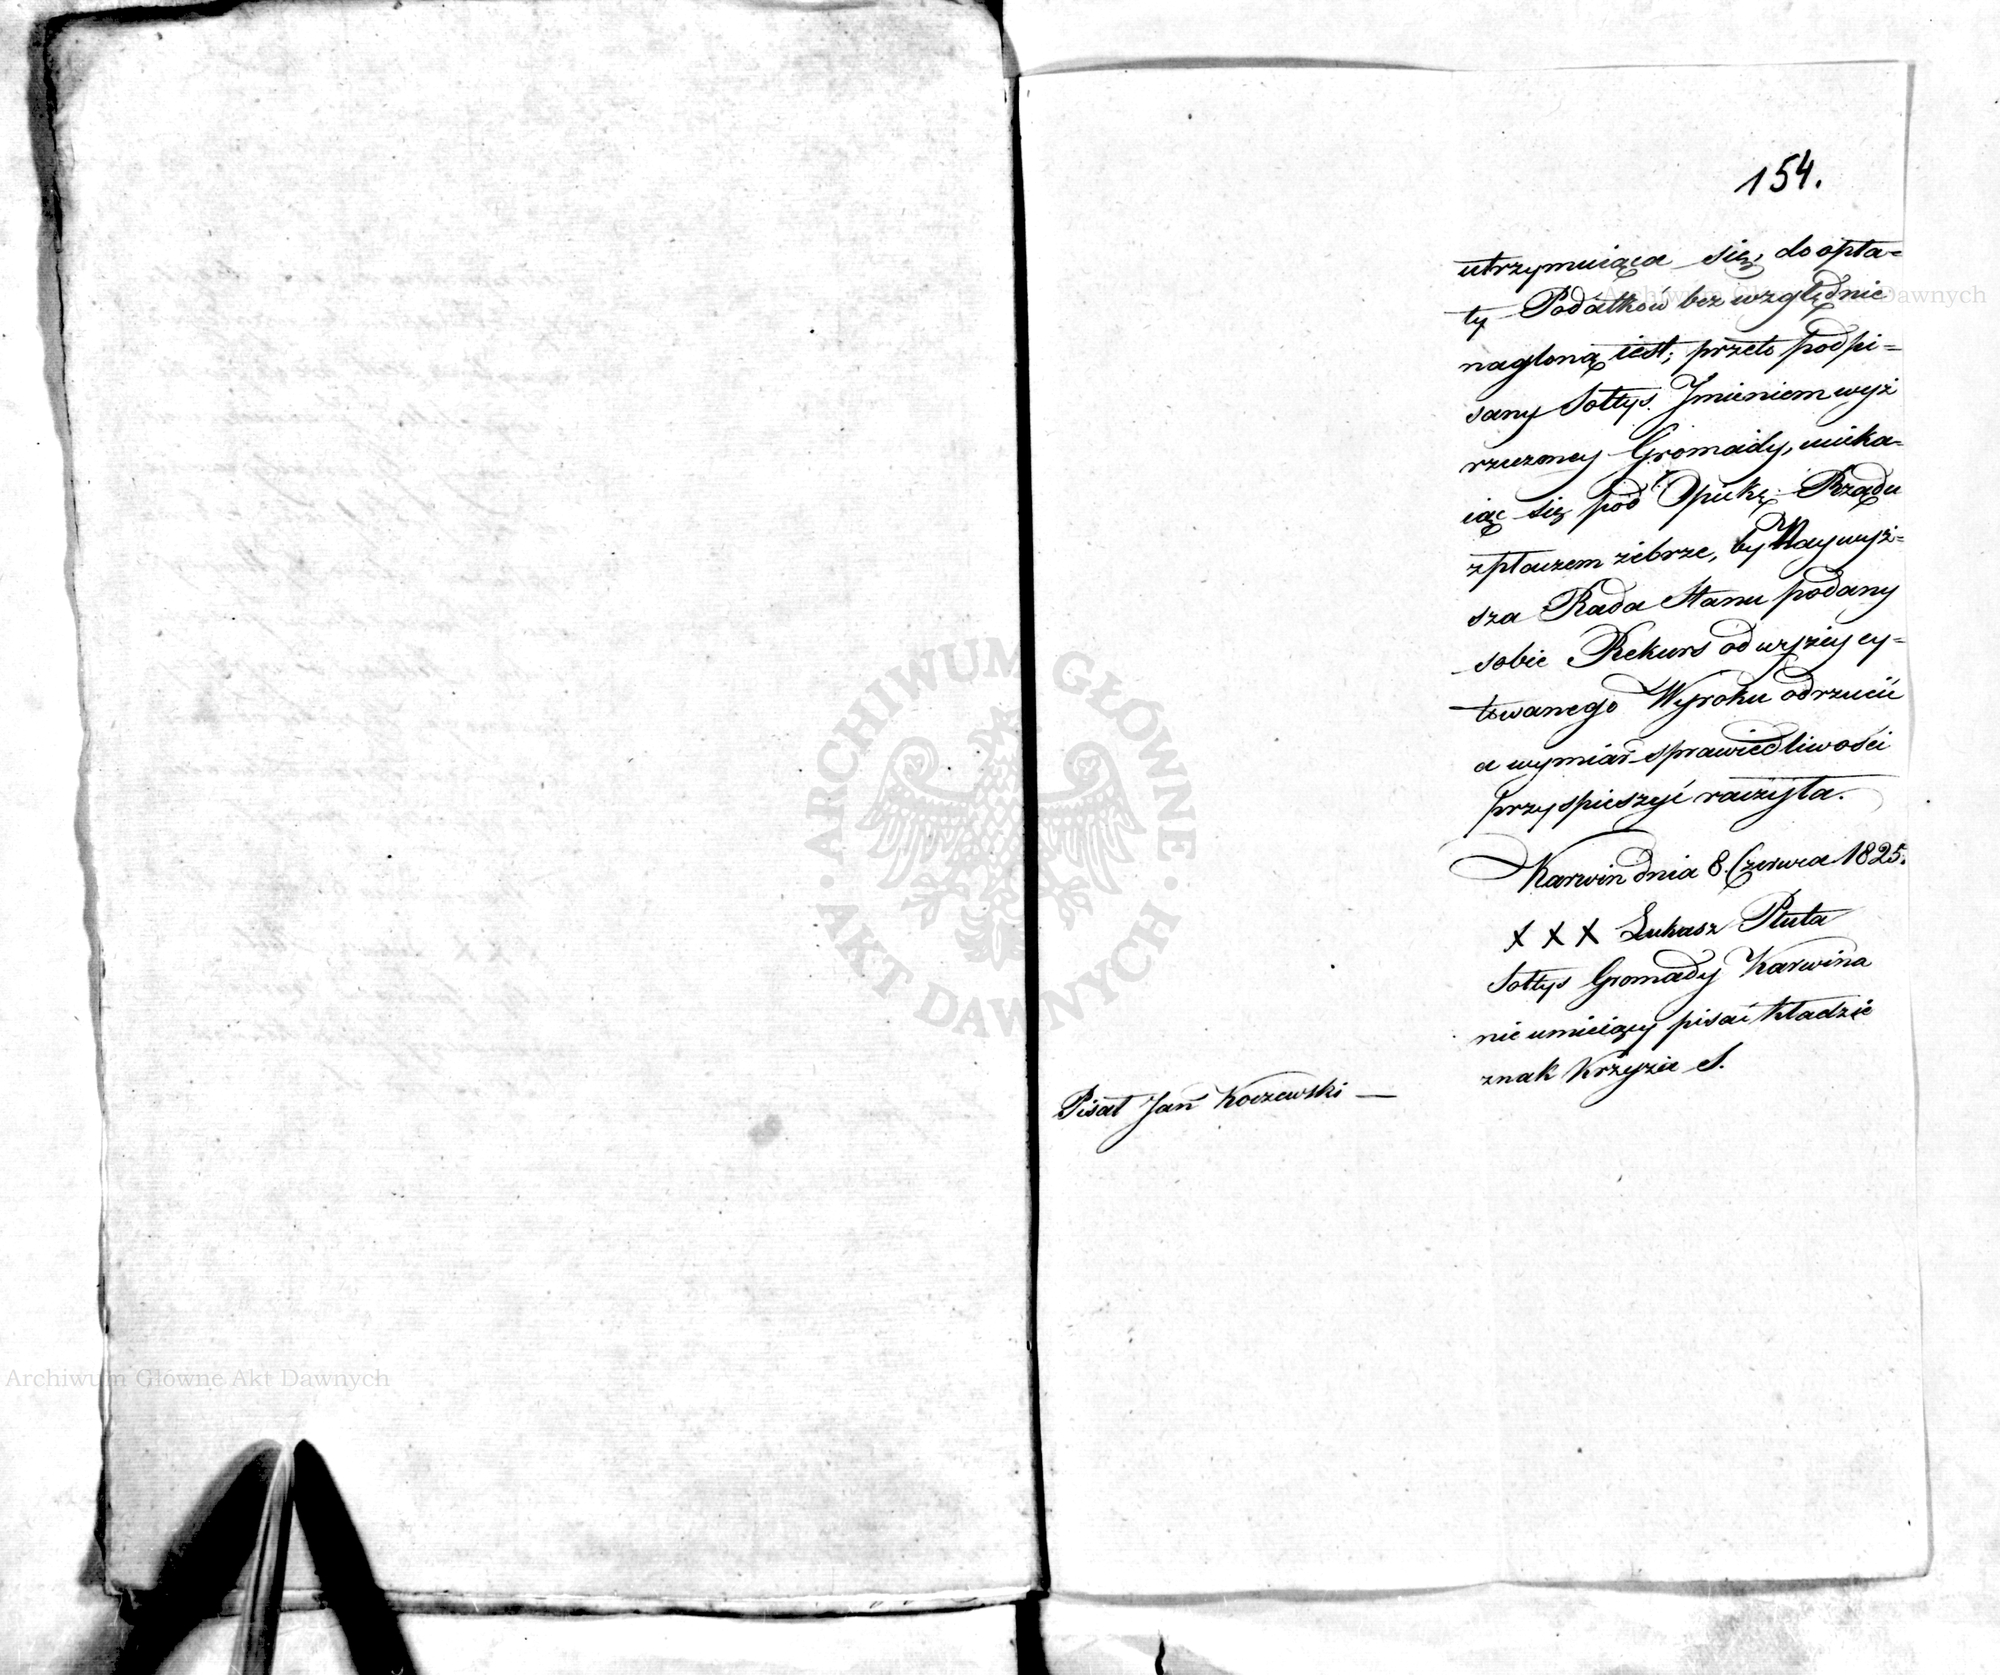 154.
utrzymuiąca się, do opła-
ty Podatków bez względnie
nagloną iest; przeto podpi-
sany Sołtys Imieniem wyż
rzeczoney Gromady, ucieka-
iąc się pod Opiekę Rządu
z płaczem żebrze, by Naywyż-
sza Rada Stanu podany
sobie Rekurs od wyżey cy-
towanego Wyroku odrzucić
a wymiar sprawiedliwości
przyspieszyć raczyła.
Karwin dnia 8. Czerwca 1825.
X X X Łukasz Pluta
Sołtys Gromady Karwina
nie umieiący pisać kładzie
znak Krzyża S.
Pisał Jan Koczewski —
ARCHIWUM GŁÓWNE
AKT DAWNYCH
Archiwum Główne Akt Dawnych
Archiwum Główne Akt Dawnych